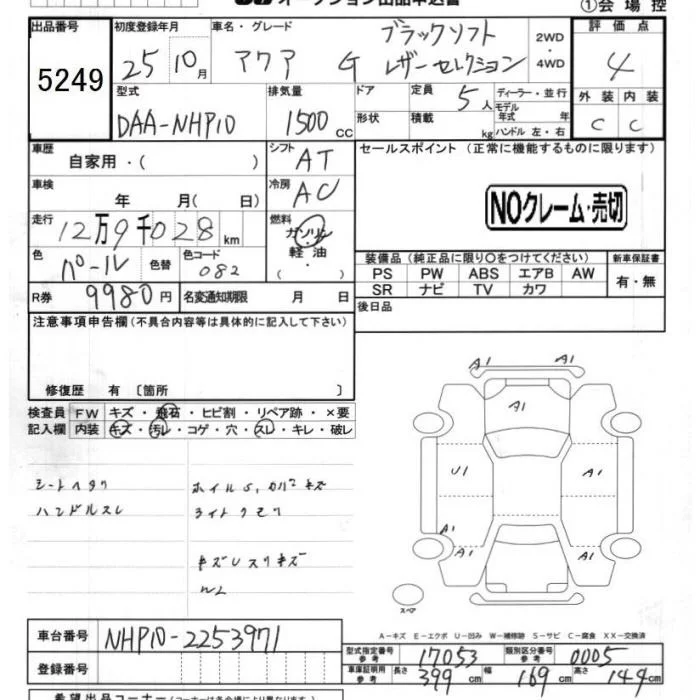 ①会場控
出品番号 初度登録年月 車名・グレード 評価点
5249 25 10月 アクア G ブラックソフト レザーセレクション 2WD・4WD 4
型式 排気量 ドア 定員 5人 ディーラー・並行 外装 内装
DAA-NHP10 1500cc 形状 積載 kg モデル年式 年式 ハンドル 左・右 C C
車歴 自家用・( ) シフト AT セールスポイント (正常に機能するものに限ります)
車検 年 月( 日) 冷房 AC
NOクレーム・売切
走行 12万9千028km 燃料 ガソリン 軽油
色 パール 色替 色コード 082
装備品 (純正品に限り○をつけてください) 新車保証書
PS PW ABS エアB AW 有・無
SR ナビ TV カワ
R券 9980円 名変通知期限 月 日
後日品
注意事項申告欄 (不具合内容等は具体的に記入して下さい)
修復歴 有 〔箇所 〕
検査員 FW キズ・飛石・ヒビ割・リペア跡・×要
記入欄 内装 キズ・汚レ・コゲ・穴・スレ・キレ・破レ
A1 A1
A1
U1 A1
A1
A1 A1
シートヘタリ ホイルS.カバーキズ
ハンドルスレ ライトクモリ
キズUスリキズ
スペア
A-キズ E-エクボ U-凹み W-補修跡 S-サビ C-腐食 XX-交換済
車台番号 NHP10-2253971
登録番号
型式指定番号 参考 17053 類別区分番号 参考 0005
車庫証明用 参考 長さ 399cm 幅 169cm 高さ 144cm
希望出品コーナー